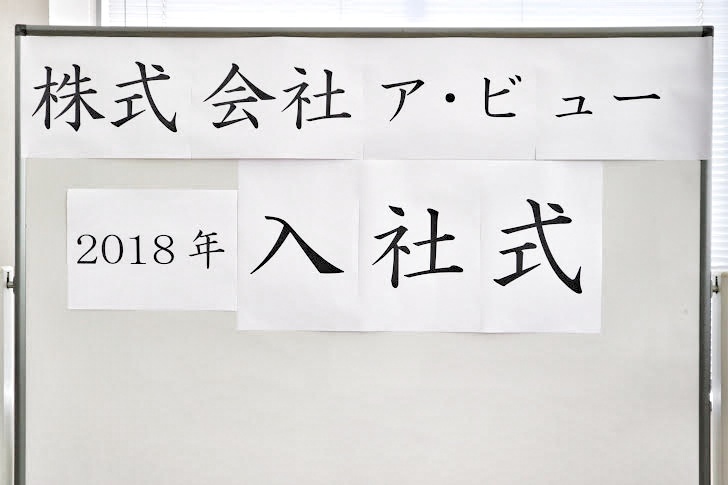 株式会社ア・ビュー
2018年 入社式